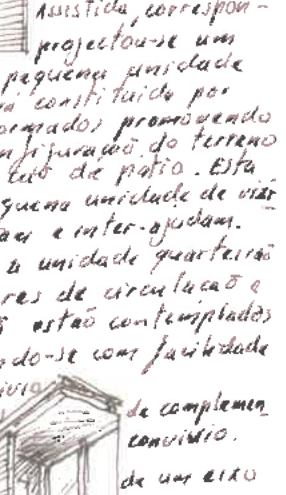 Assistida, correspon-
projectou-se um
pequena unidade
constituida por
ormados promovendo
nfiguração do terreno
de patio. Esta
quena unidade de vizi
e inter-ajudam.
a unidade quarteirão
res de circulação e
estão contemplados
ndo-se com facilidade
ivio
de complemen
convivio.
de um eixo